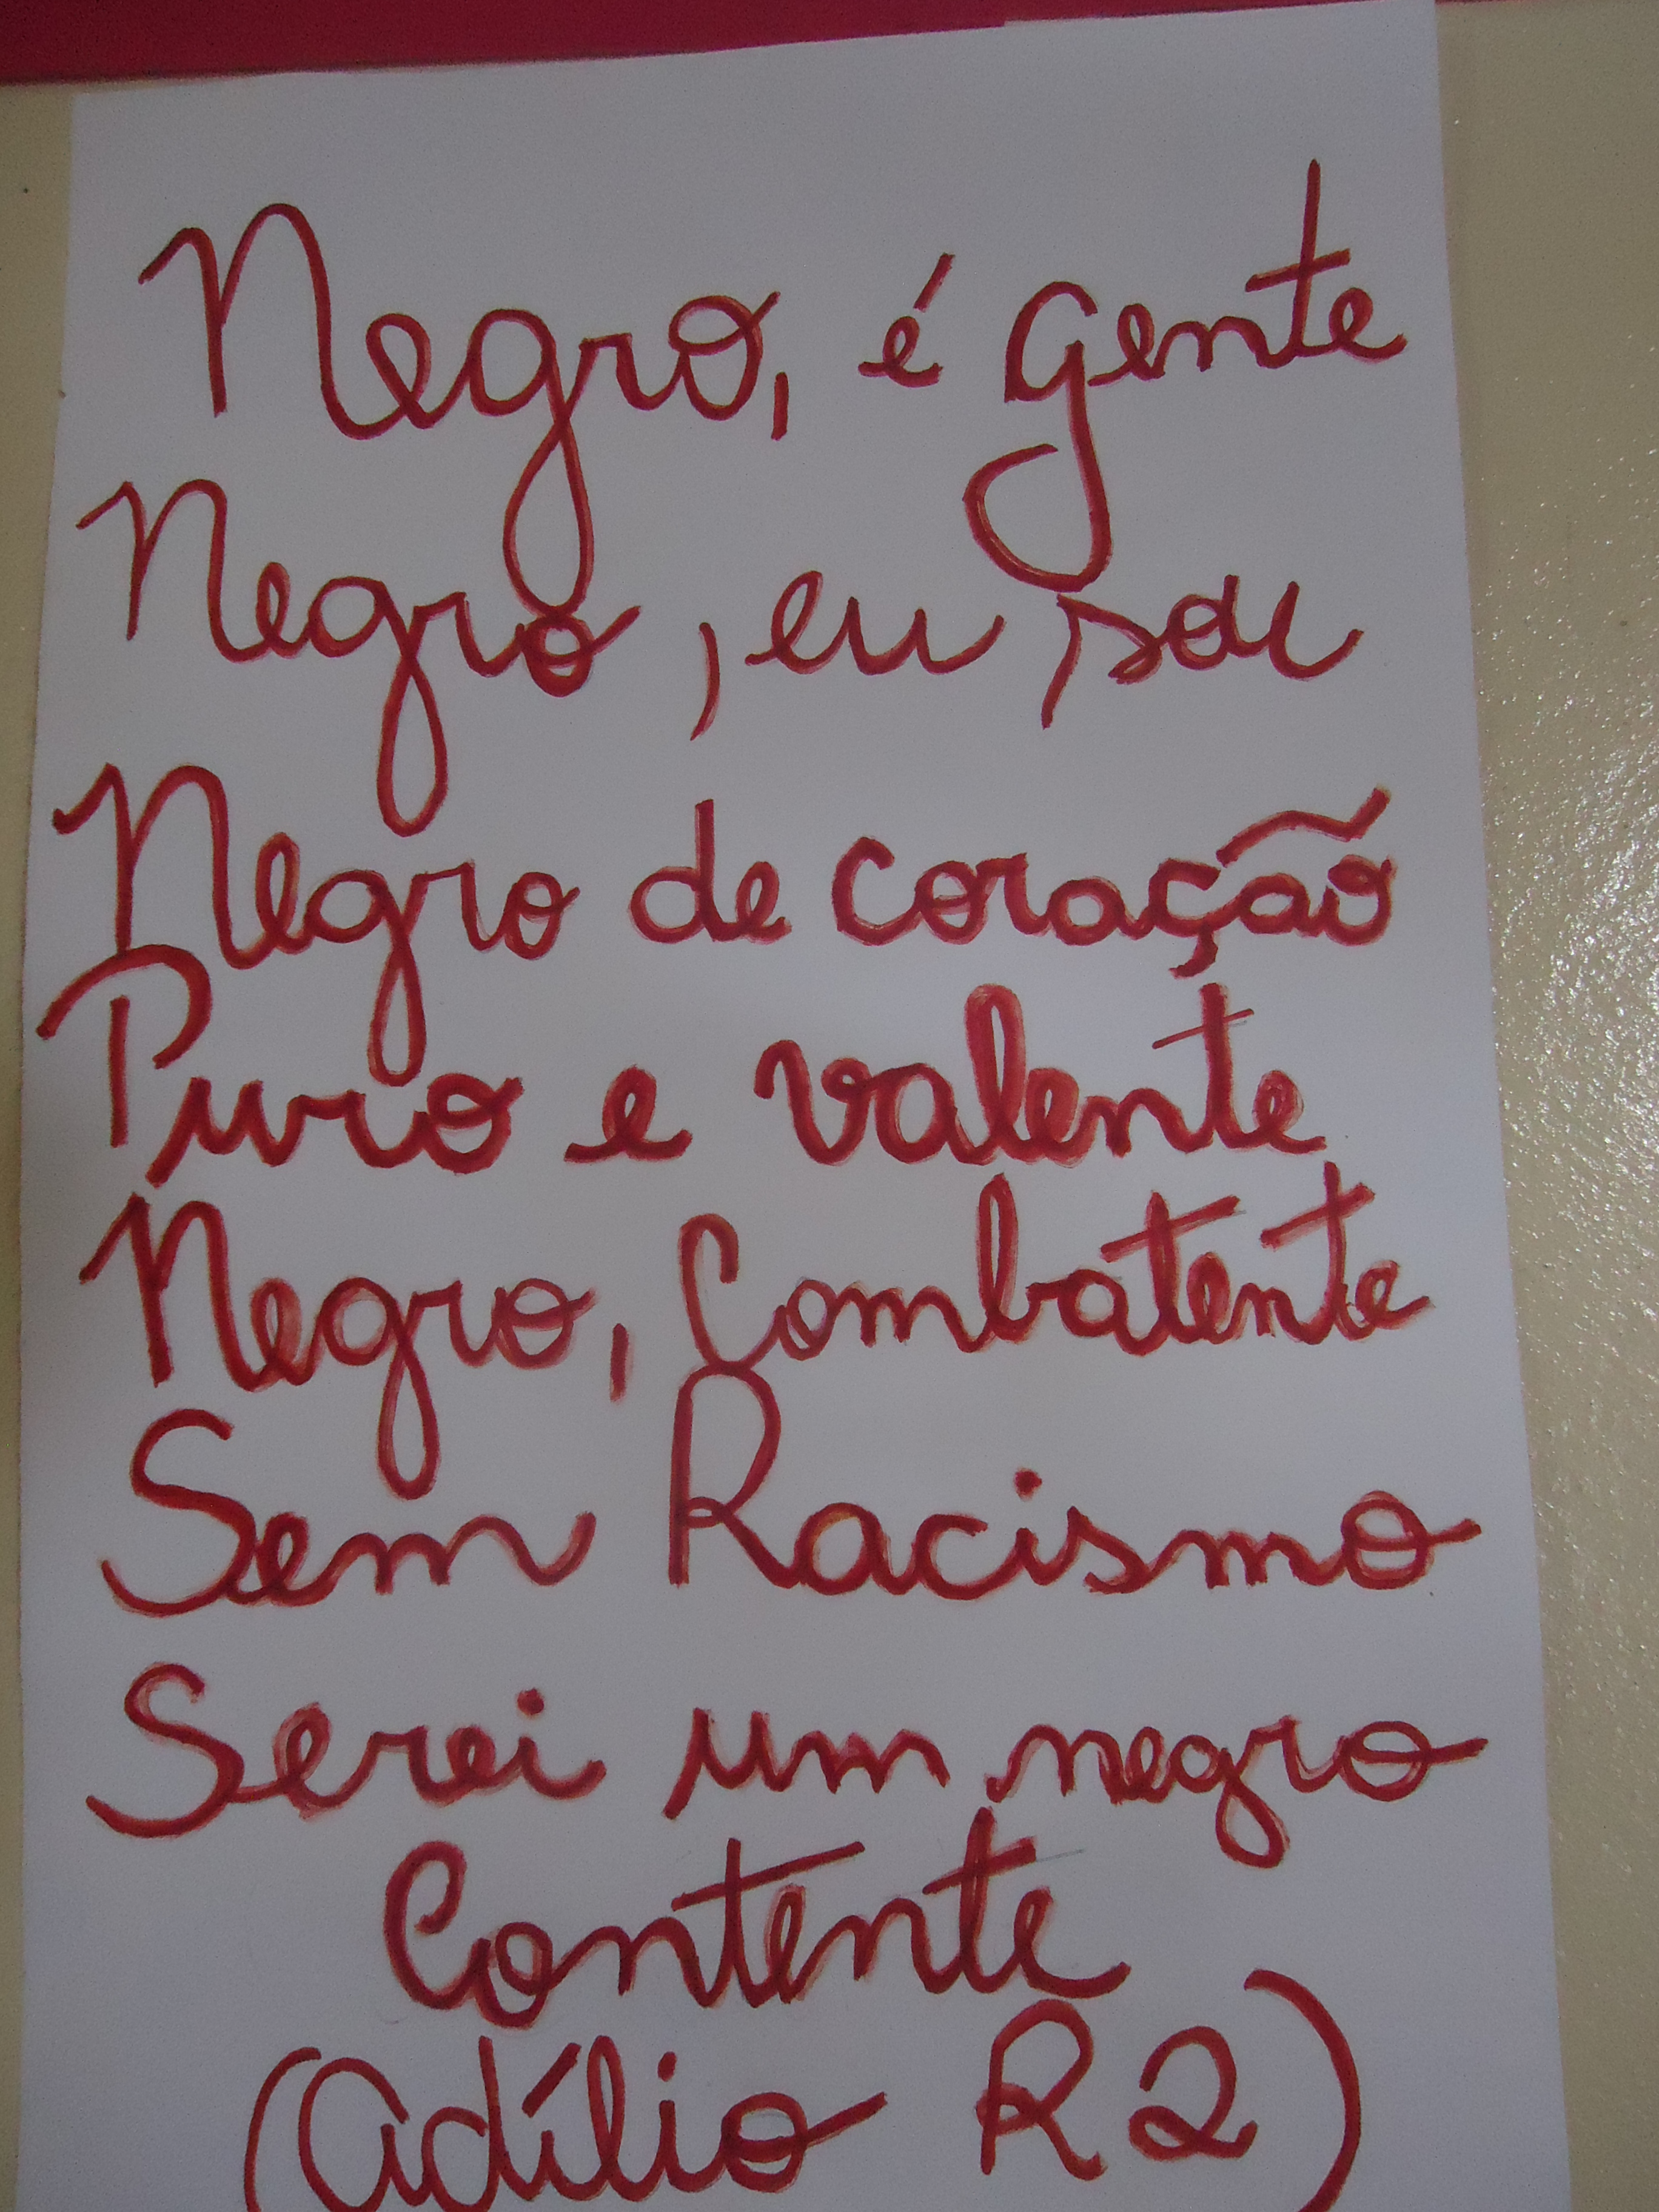 Negro, é gente
Negro, eu sou
Negro de coração
Puro e valente
Negro, Combatente
Sem Racismo
Serei um negro
Contente
(Adílio R2)